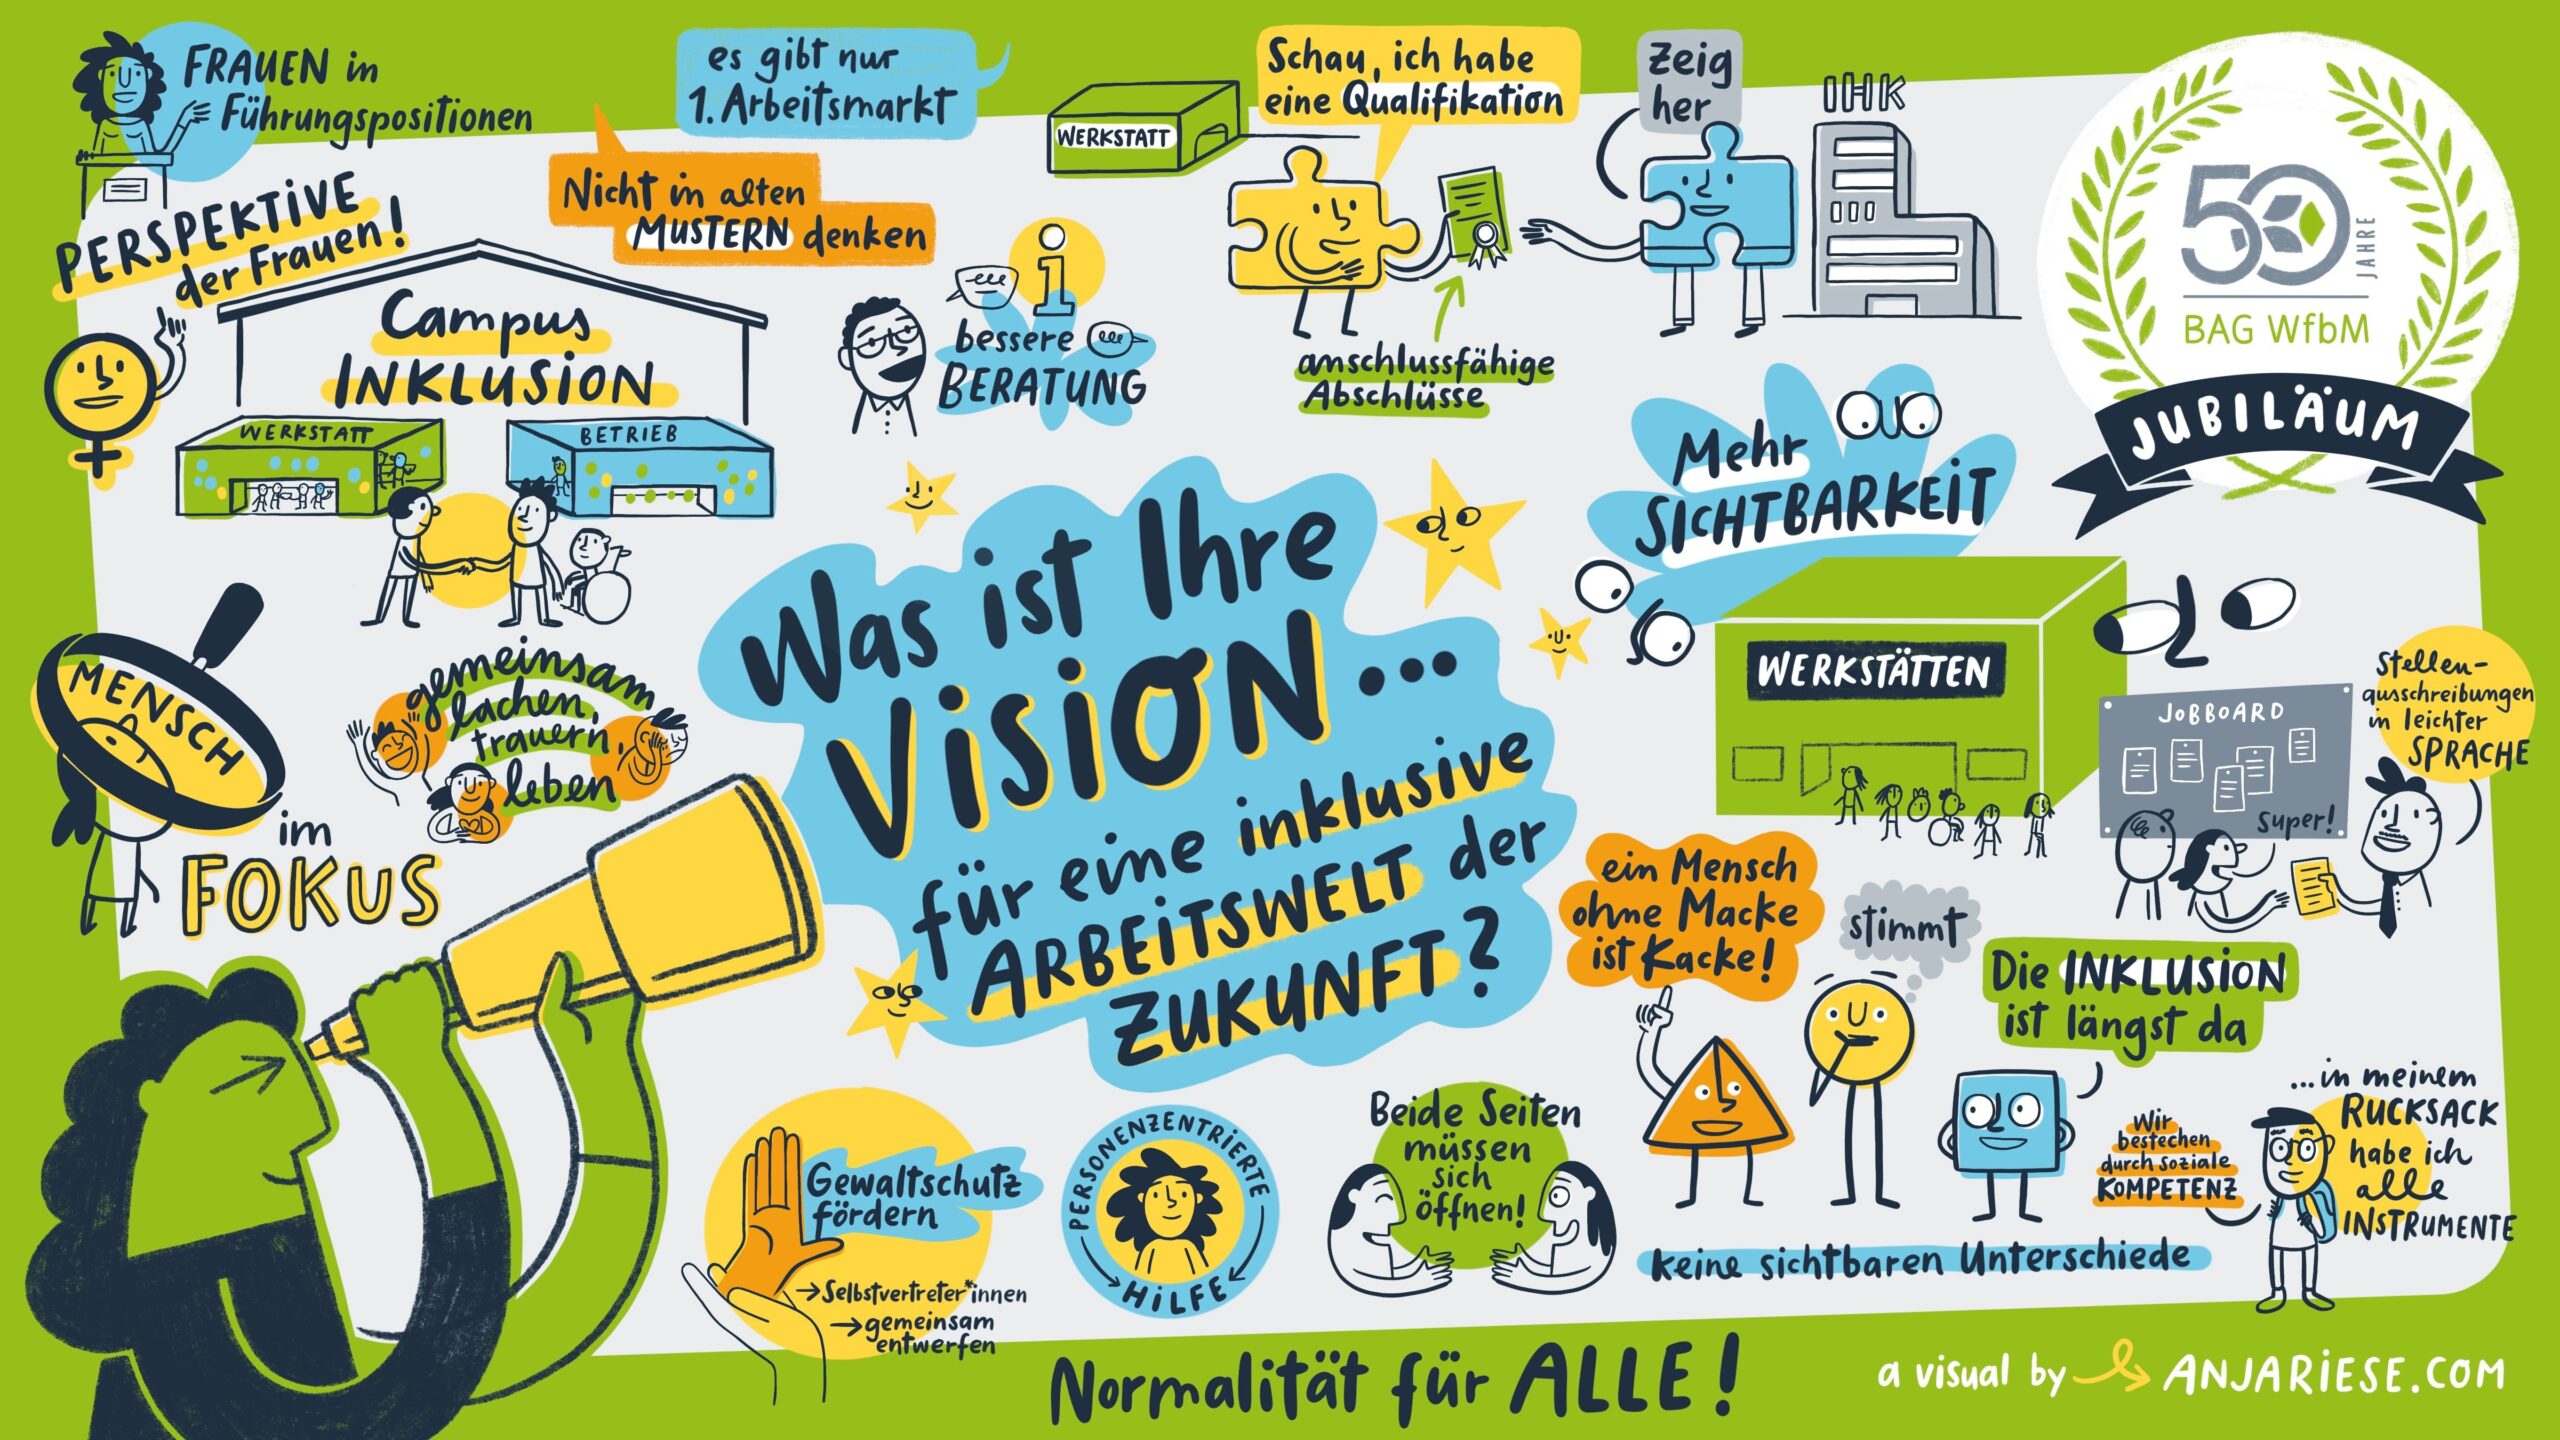 FRAUEN in
Führungspositionen
PERSPEKTIVE
der Frauen!
es gibt nur
1. Arbeitsmarkt
Nicht in alten
MUSTERN denken
Campus
INKLUSION
WERKSTATT
BETRIEB
bessere
BERATUNG
WERKSTATT
Schau, ich habe
eine Qualifikation
Zeig
her
IHK
anschlussfähige
Abschlüsse
50
JAHRE
BAG WfbM
JUBILÄUM
Mehr
SICHTBARKEIT
WERKSTÄTTEN
JOBBOARD
Stellen-
ausschreibungen
in leichter
SPRACHE
super!
MENSCH
im
FOKUS
gemeinsam
lachen,
trauern,
leben
Was ist Ihre
VISION...
für eine inklusive
ARBEITSWELT der
ZUKUNFT?
ein Mensch
ohne Macke
ist Kacke!
stimmt
Die INKLUSION
ist längst da
Wir
bestechen
durch soziale
KOMPETENZ
...in meinem
RUCKSACK
habe ich
alle
INSTRUMENTE
keine sichtbaren Unterschiede
Gewaltschutz
fördern
→Selbstvertreter*innen
→gemeinsam
entwerfen
PERSONENZENTRIERTE
HILFE
Beide Seiten
müssen
sich
öffnen!
Normalität für ALLE!
a visual by ANJARIESE.COM